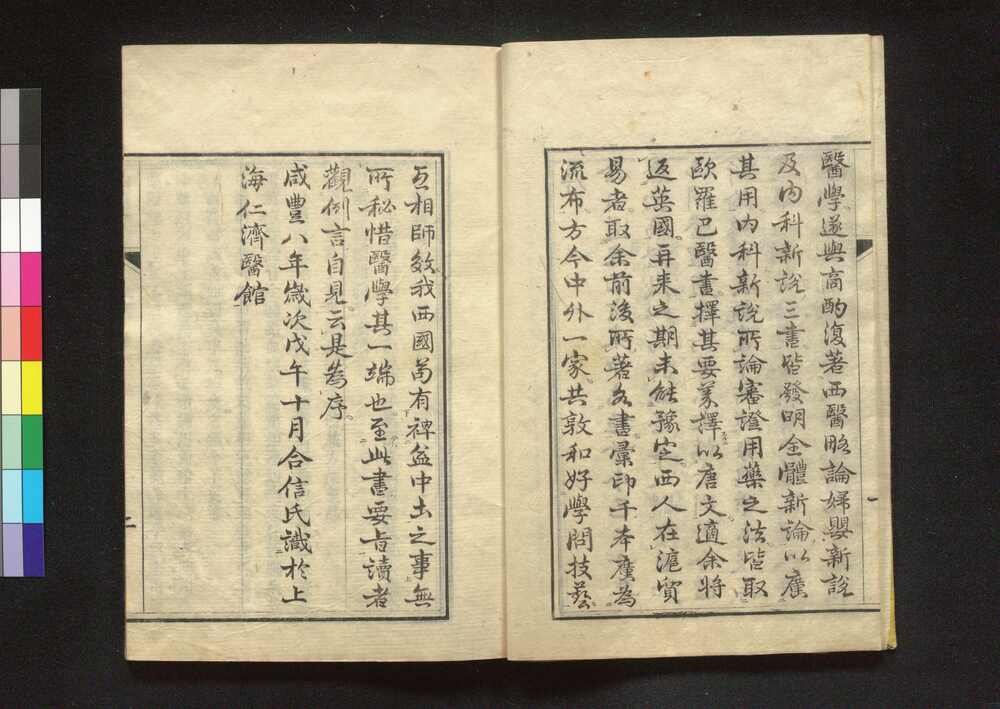 醫學遂與商酌復著西醫畧論婦嬰新說
及內科新說三書皆發明全體新論以廣
其用內科新說所論審證用藥之法皆取
歐羅巴醫書擇其要義譯以唐文適余將
返英國再来之期未能豫定西人在滬貿
易者取余前後所著各書彙印千本廣為
流布方今中外一家共敦和好學問技藝
互相師效我西國苟有裨益中土之事無
所秘惜醫學其一端也至此書要旨讀者
觀例言自見云是為序
咸豐八年歲次戊午十月合信氏識於上
海仁濟醫館